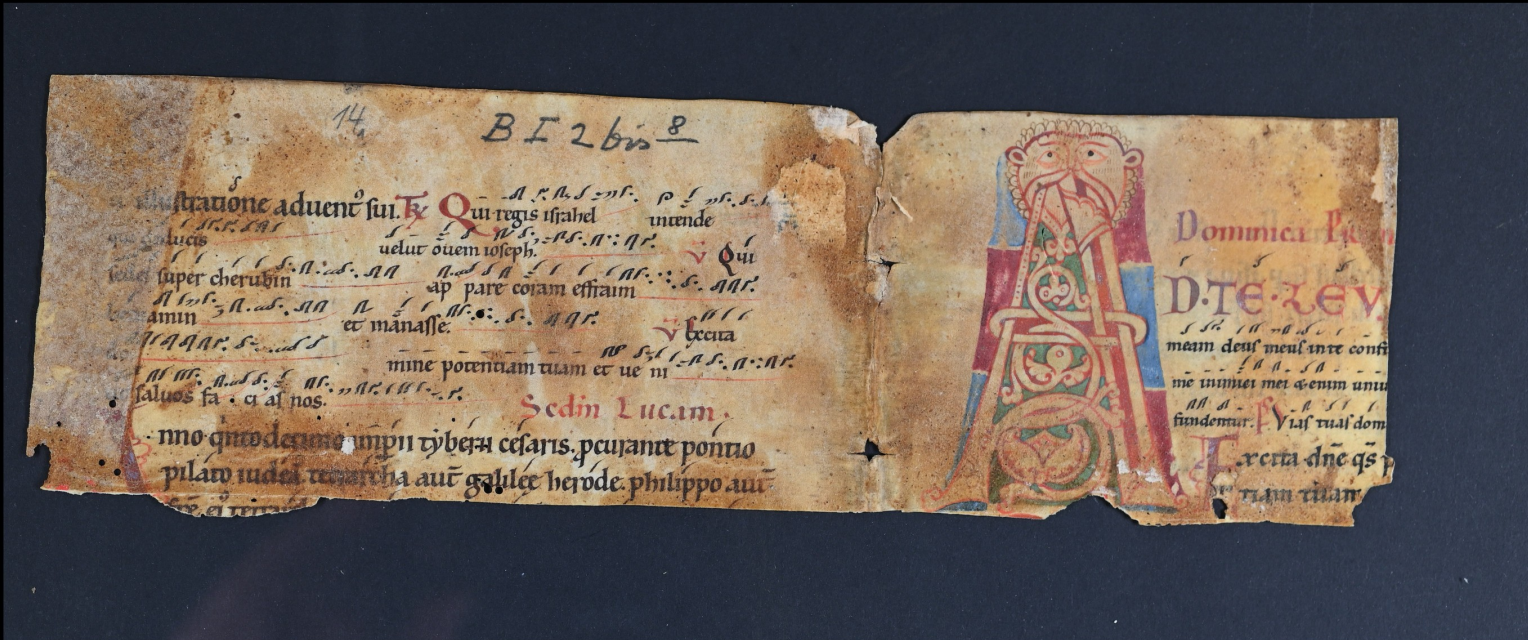 14
B I 2 bis 8
illustratione aduent᷒ sui. Tꝛ Qui regis israhel intende
qui lucis uelut ouem ioseph. v̄ Qui
sedes super cherubin ap pare coram effraim
amin et manasse. v̄ Excita
mine potentiam tuam et ue ni
saluos fa ci as nos.
Scd̄m Lucam.
nno qͥntodecimo imp̄ii tyberii cesaris. ꝓcurante pontio
pilato iudeā tetrarcha aut̄ galilee herode. philippo aut̄
Dominica Pri
A
D·TE·LEV
meam deus meus in te confi
me inimici mei & enim uniu
fundentur. Ps Vias tuas dom
Excita dn̄e q̄s p
tiam tuam